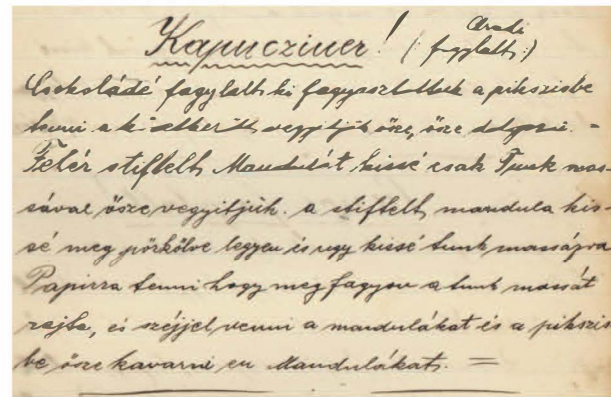 Kapucziner! (Aradi
fagylalt:)
Csokoládé fagylalt ki fagyasztottuk a pikszisbe
tenni a ki vegyitjük ősze, ősze dolgozni. =
Fehér stiftelt Mandulát kissé csak Tunk mas-
sával ősze vegyitjük. a stiftelt mandula kis-
sé meg pörkölve legyen is ugy kissé tunk masságva
Papirra tenni hogy meg fagyon a tunk massát
rajta, és széjjel venni a mandulákat és a pikszis
be ősze kavarni en Mandulákat. =